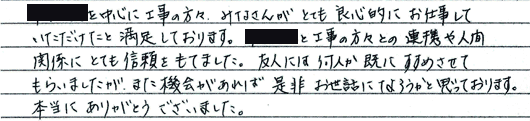 を中心に工事の方々、みなさんが とても 良心的に お仕事して
いただけたと 満足しております。 と工事の方々との 連携や人間
関係に とても 信頼を もてました。 友人には 何人か 既に すすめさせて
もらいましたが、また 機会があれば 是非 お世話に なろうかと思っております。
本当に ありがとう ございました。